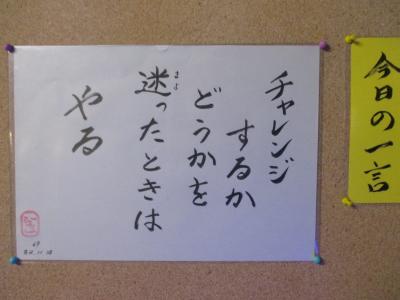 今日の一言
チャレンジ
するか
どうかを
迷ったときは
まよ
やる